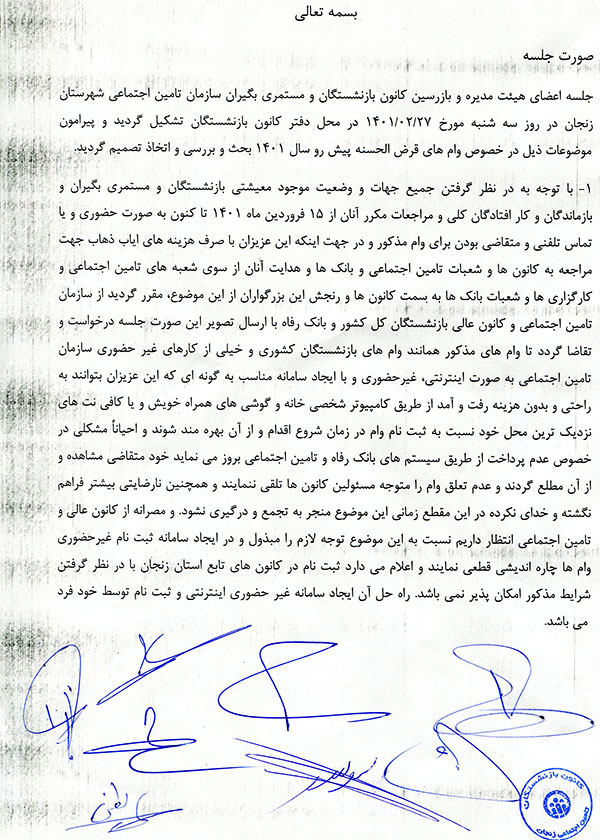 بسمه تعالی
صورت جلسه
جلسه اعضای هیئت مدیره و بازرسین کانون بازنشستگان و مستمری بگیران سازمان تامین اجتماعی شهرستان
زنجان در روز سه شنبه مورخ ۱۴۰۱/۰۲/۲۷ در محل دفتر کانون بازنشستگان تشکیل گردید و پیرامون
موضوعات ذیل در خصوص وام های قرض الحسنه پیش رو سال ۱۴۰۱ بحث و بررسی و اتخاذ تصمیم گردید.
۱- با توجه به در نظر گرفتن جمیع جهات و وضعیت موجود معیشتی بازنشستگان و مستمری بگیران و
بازماندگان و کار افتادگان کلی و مراجعات مکرر آنان از ۱۵ فروردین ماه ۱۴۰۱ تا کنون به صورت حضوری و یا
تماس تلفنی و متقاضی بودن برای وام مذکور و در جهت اینکه این عزیزان با صرف هزینه های ایاب ذهاب جهت
مراجعه به کانون ها و شعبات تامین اجتماعی و بانک ها و هدایت آنان از سوی شعبه های تامین اجتماعی و
کارگزاری ها و شعبات بانک ها به سمت کانون ها و رنجش این بزرگواران از این موضوع، مقرر گردید از سازمان
تامین اجتماعی و کانون عالی بازنشستگان کل کشور و بانک رفاه با ارسال تصویر این صورت جلسه درخواست و
تقاضا گردد تا وام های مذکور همانند وام های بازنشستگان کشوری و خیلی از کارهای غیر حضوری سازمان
تامین اجتماعی به صورت اینترنتی، غیرحضوری و با ایجاد سامانه مناسب به گونه ای که این عزیزان بتوانند به
راحتی و بدون هزینه رفت و آمد از طریق کامپیوتر شخصی خانه و گوشی های همراه خویش و یا کافی نت های
نزدیک ترین محل خود نسبت به ثبت نام وام در زمان شروع اقدام و از آن بهره مند شوند و احیاناً مشکلی در
خصوص عدم پرداخت از طریق سیستم های بانک رفاه و تامین اجتماعی بروز می نماید خود متقاضی مشاهده و
از آن مطلع گردند و عدم تعلق وام را متوجه مسئولین کانون ها تلقی ننمایند و همچنین نارضایتی بیشتر فراهم
نگشته و خدای نکرده در این مقطع زمانی این موضوع منجر به تجمع و درگیری نشود. و مصرانه از کانون عالی و
تامین اجتماعی انتظار داریم نسبت به این موضوع توجه لازم را مبذول و در ایجاد سامانه ثبت نام غیرحضوری
وام ها چاره اندیشی قطعی نمایند و اعلام می دارد ثبت نام در کانون های تابع استان زنجان با در نظر گرفتن
شرایط مذکور امکان پذیر نمی باشد. راه حل آن ایجاد سامانه غیر حضوری اینترنتی و ثبت نام توسط خود فرد
می باشد.
کانون بازنشستگان
تامین اجتماعی زنجان